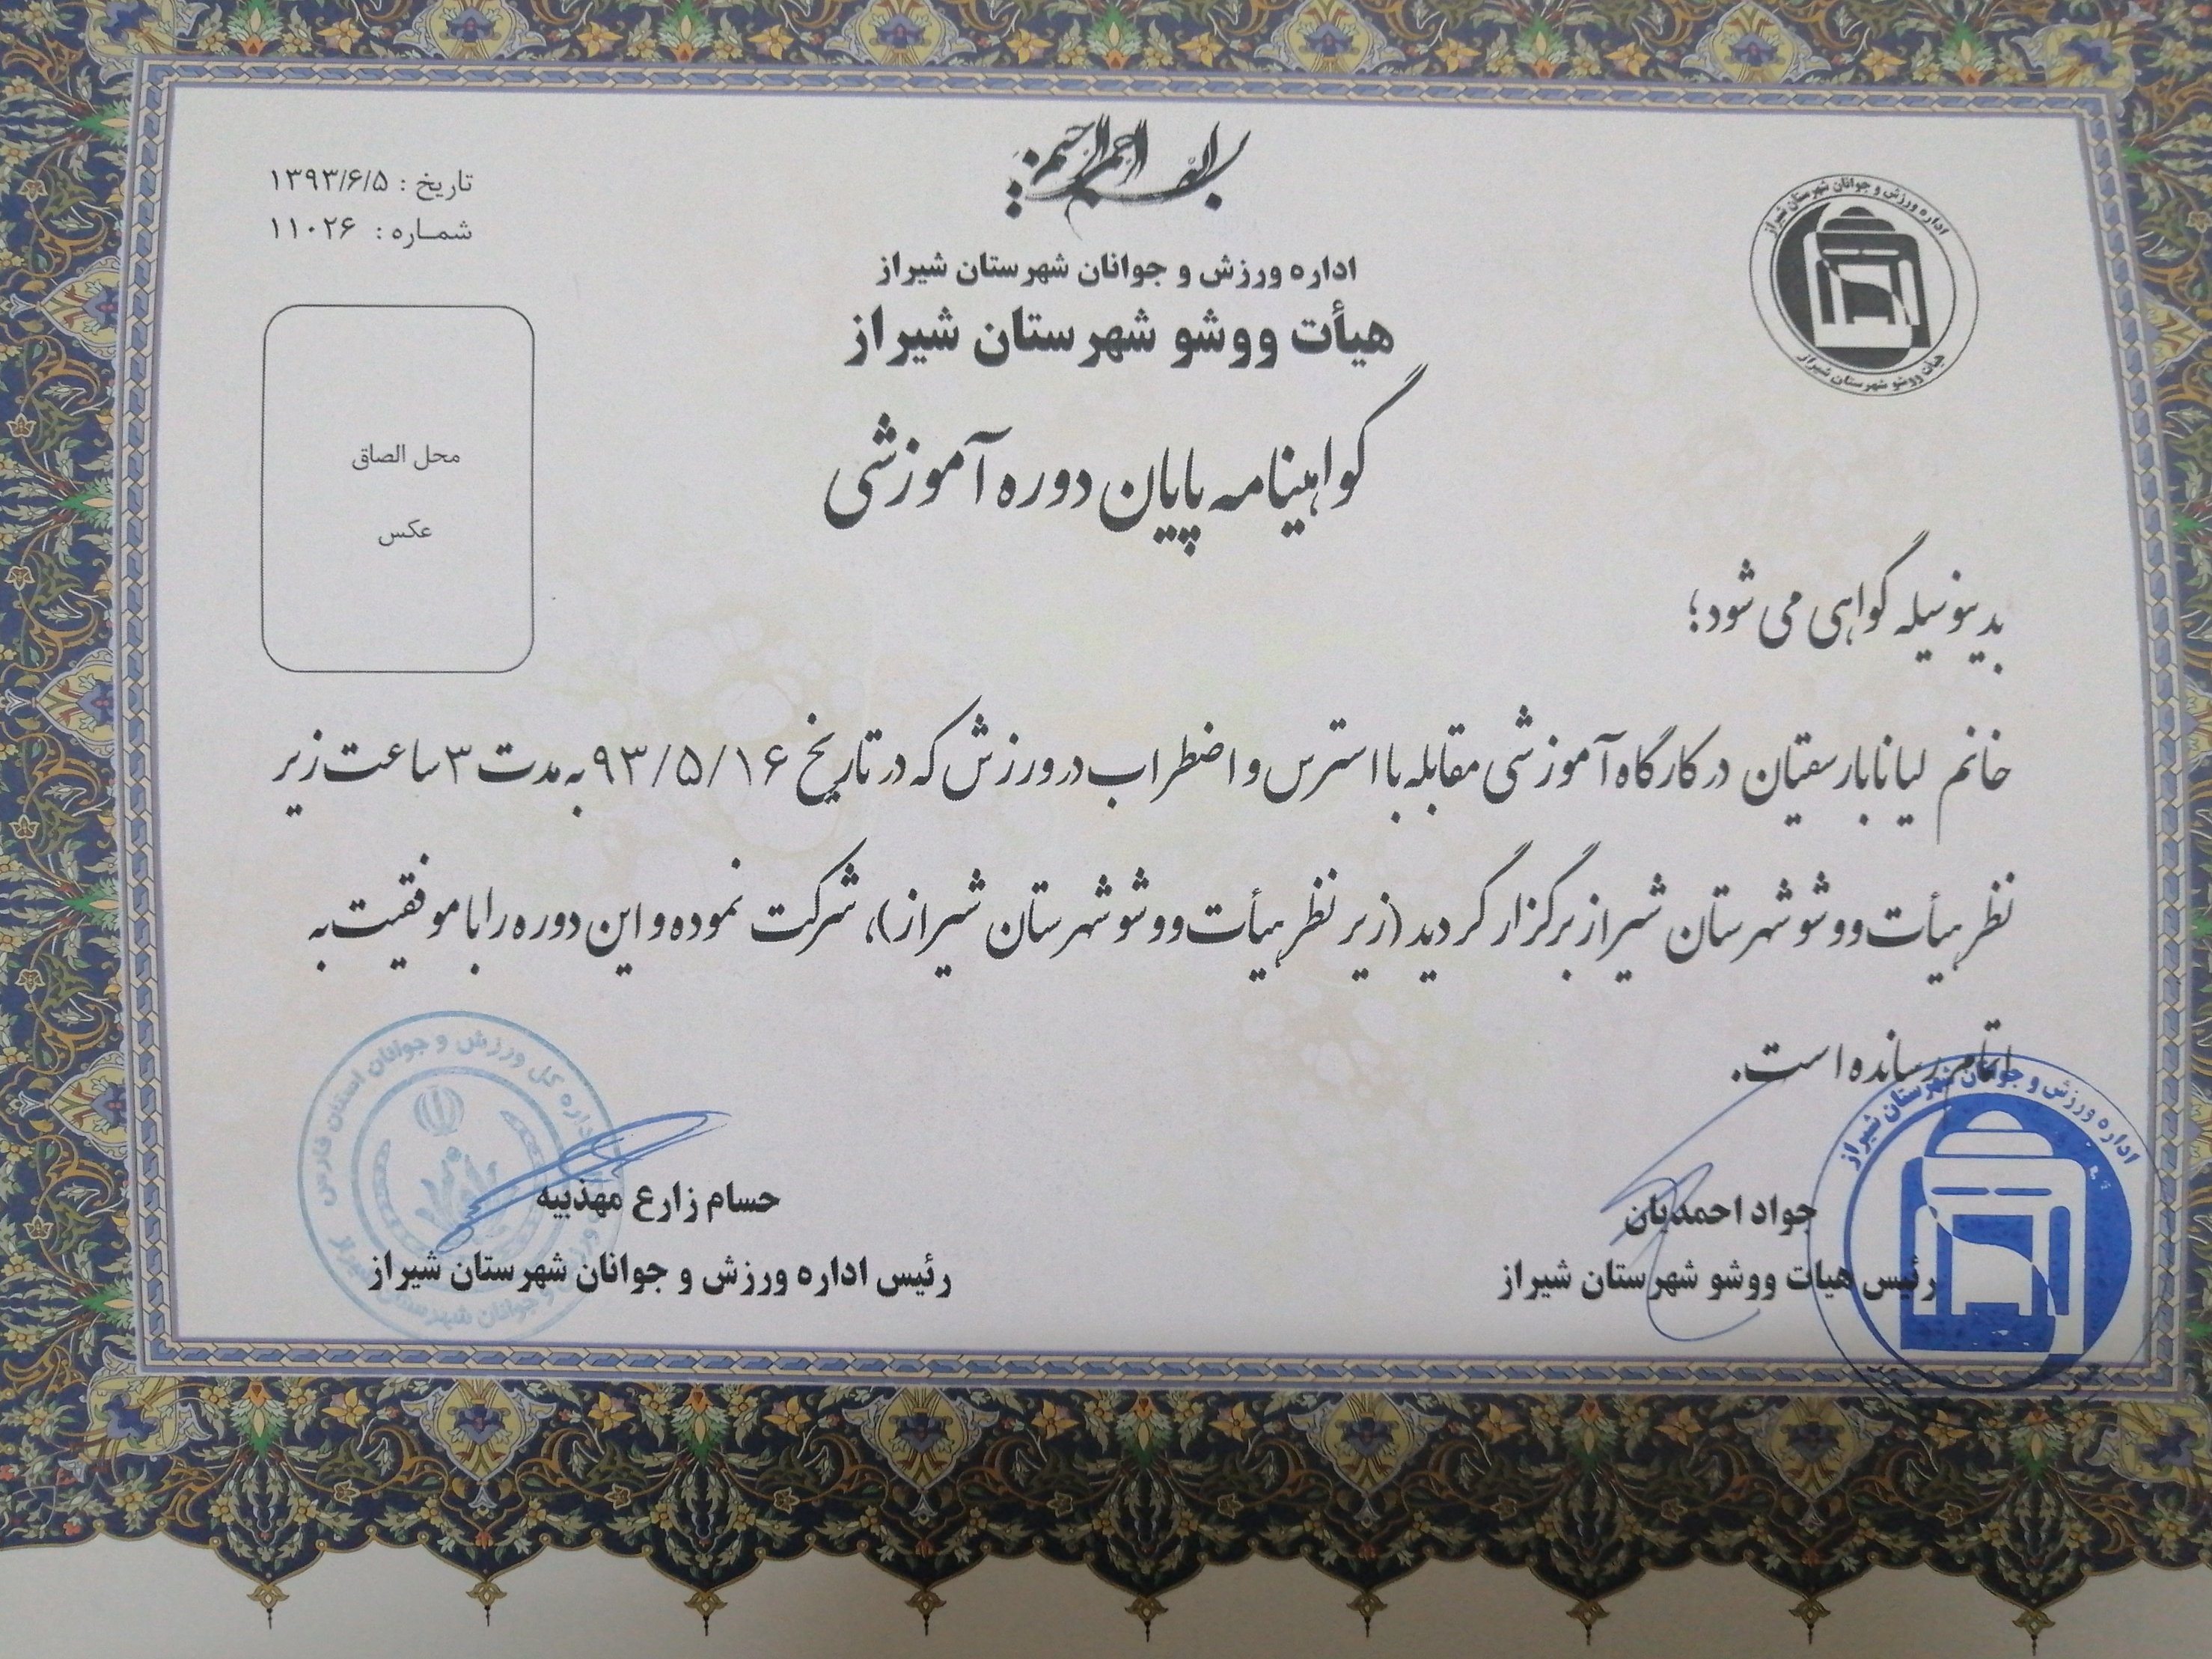 بسم الله الرحمن الرحیم
تاریخ : ۱۳۹۳/۶/۵
شماره : ۱۱۰۲۶
اداره ورزش و جوانان شهرستان شیراز
هیأت ووشو شهرستان شیراز
اداره ورزش و جوانان شهرستان شیراز
هیأت ووشو شهرستان شیراز
گواهینامه پایان دوره آموزشی
محل الصاق
عکس
بدینوسیله گواهی می شود؛
خانم لیانا بارسقیان در کارگاه آموزشی مقابله با استرس و اضطراب در ورزش که در تاریخ ۹۳/۵/۱۶ به مدت ۳ ساعت زیر
نظر هیأت ووشو شهرستان شیراز برگزار گردید (زیر نظر هیأت ووشو شهرستان شیراز)، شرکت نموده و این دوره را با موفقیت به
اتمام رسانده است.
اداره ورزش و جوانان شهرستان شیراز
جواد احمدیان
رئیس هیات ووشو شهرستان شیراز
اداره کل ورزش و جوانان استان فارس
ورزش و جوانان شهرستان شیراز
حسام زارع مهذبیه
رئیس اداره ورزش و جوانان شهرستان شیراز